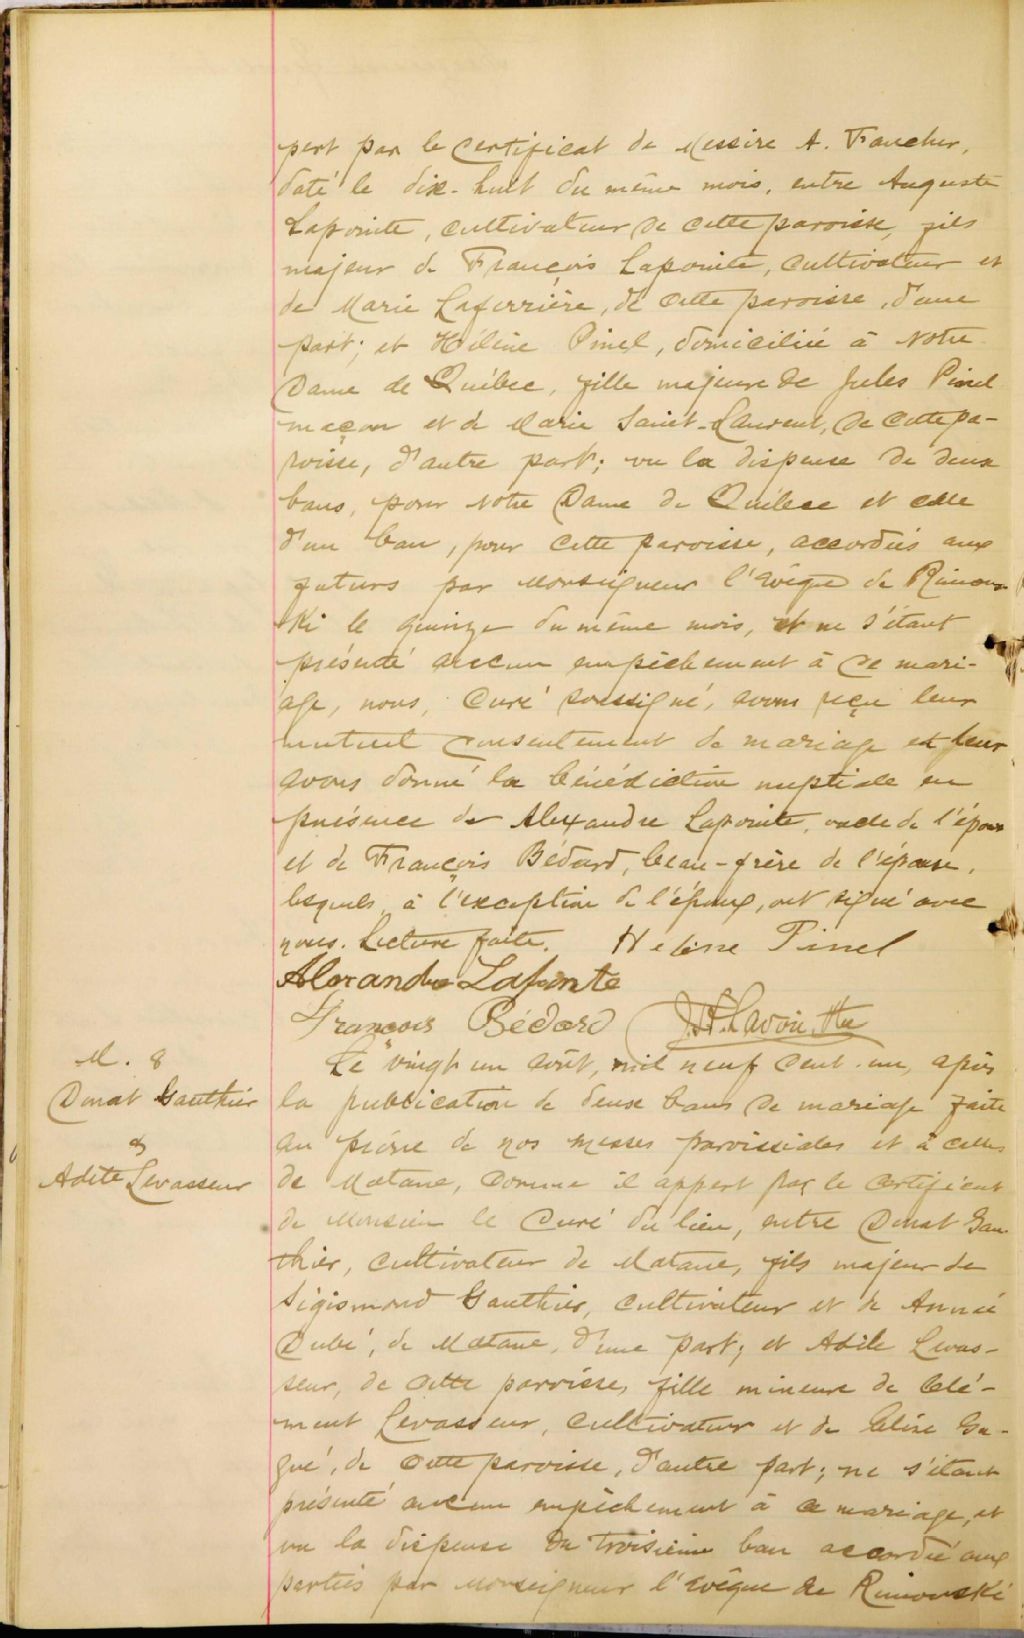 pert par le certificat de Messire A. Faucher,
daté le dix-huit du même mois, entre Auguste
Lapointe, cultivateur de cette paroisse, fils
majeur de François Lapointe, cultivateur et
de Marie Laferrière, de cette paroisse, d'une
part; et Hélène Pinel, domiciliée à Notre
Dame de Québec, fille majeure de Jules Pinel
maçon et de Marie Saint-Laurent, de cette pa-
roisse, d'autre part; vu la dispense de deux
bans, pour Notre Dame de Québec et celle
d'un ban, pour cette paroisse, accordées aux
futurs par Monseigneur l'évêque de Rimous-
ki le quinze du même mois, et ne s'étant
présenté aucun empêchement à ce mari-
age, nous, Curé soussigné, avons reçu leur
mutuel consentement de mariage et leur
avons donné la bénédiction nuptiale en
présence de Alexandre Lapointe, oncle de l'époux
et de François Bédard, beau-frère de l'épouse,
lesquels, à l'exception de l'époux, ont signé avec
nous. Lecture faite. Helène Pinel
Alexandre Lapointe
François Bédard J.A. Lavoie Ptre
M. 8
Donat Gauthier
&
Adèle Levasseur
Le vingt un août, mil neuf cent-un, après
la publication de deux bans de mariage faite
au prône de nos messes paroissiales et à celles
de Matane, comme il appert par le certificat
de Monsieur le Curé du lieu, entre Donat Gau-
thier, cultivateur de Matane, fils majeur de
Sigismond Gauthier, cultivateur et de Annie
Dubé, de Matane, d'une part; et Adèle Levas-
seur, de cette paroisse, fille mineure de Clé-
ment Levasseur, cultivateur et de Célise Ga-
gné, de cette paroisse, d'autre part; ne s'étant
présenté aucun empêchement à ce mariage, et
vu la dispense du troisième ban accordée aux
parties par Monseigneur l'évêque de Rimouski